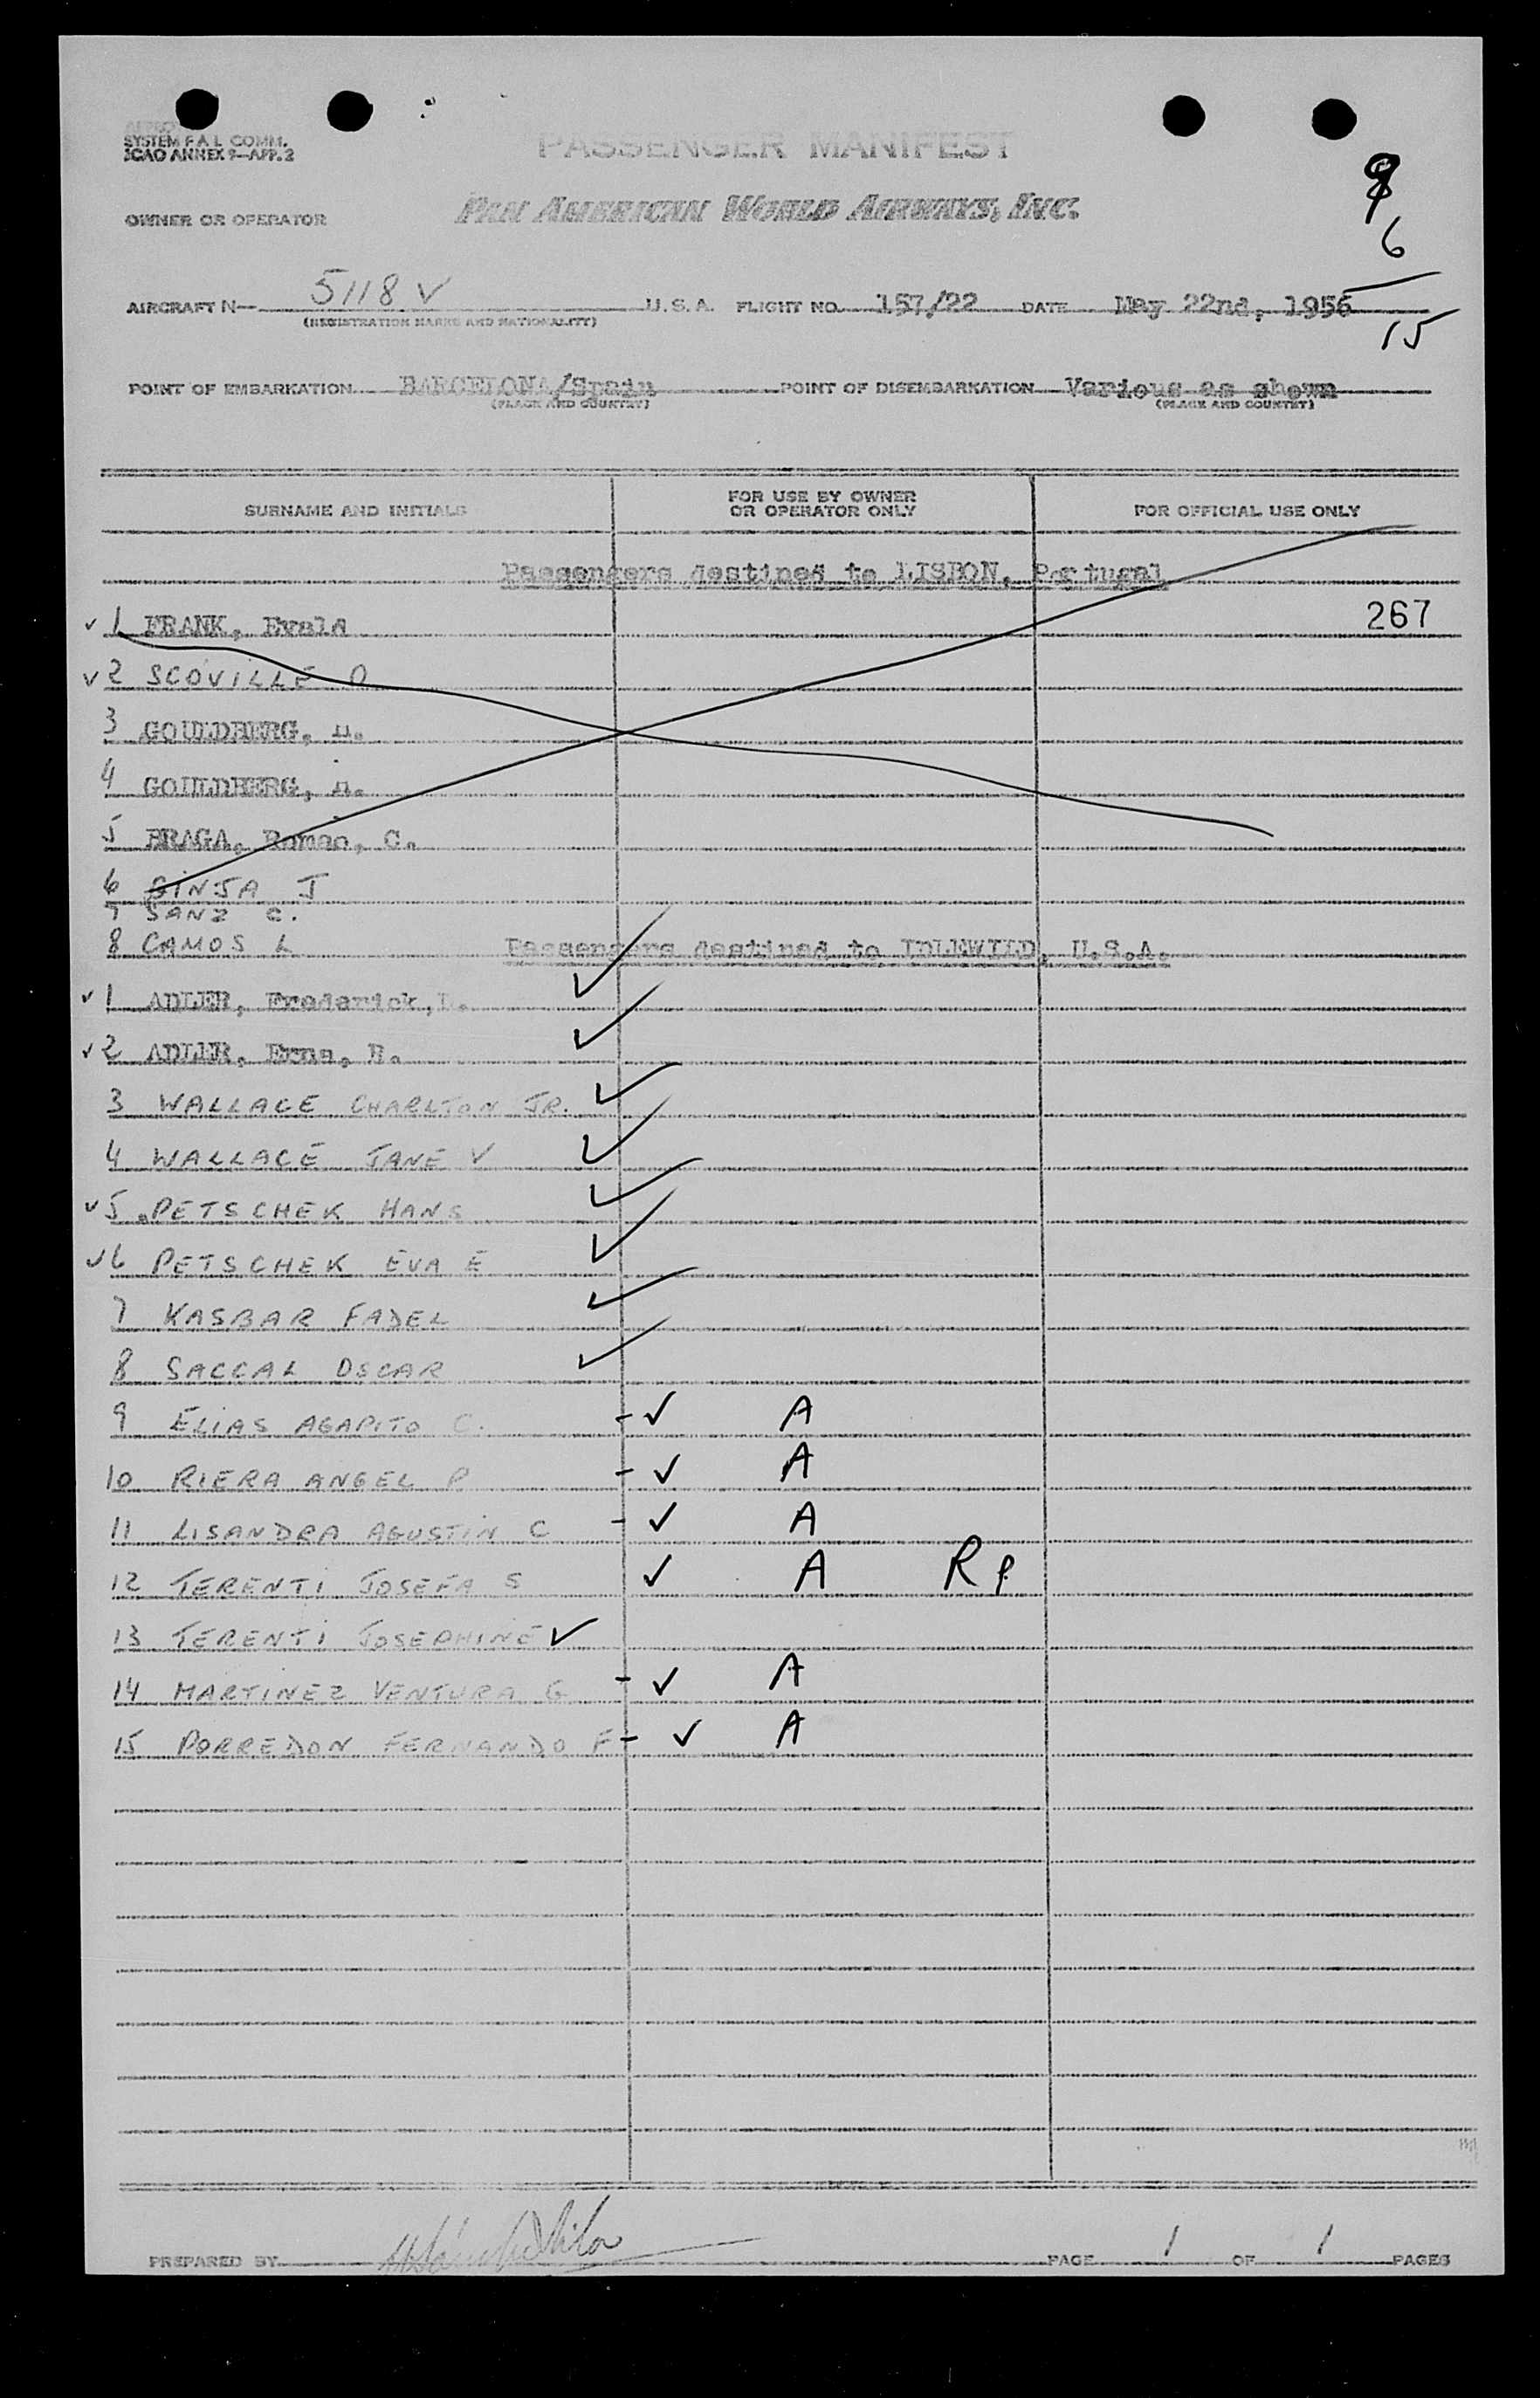 SYSTEM F.A.L. COMM.
ICAO ANNEX 9—APP. 2
PASSENGER MANIFEST
OWNER OR OPERATOR
PAN AMERICAN WORLD AIRWAYS, INC.
9
6
15
AIRCRAFT N— 5118 V U.S.A. FLIGHT NO. 157/22 DATE May 22nd, 1956
(REGISTRATION MARKS AND NATIONALITY)
POINT OF EMBARKATION BARCELONA/Spain POINT OF DISEMBARKATION Various as shown
(PLACE AND COUNTRY) (PLACE AND COUNTRY)
SURNAME AND INITIALS
FOR USE BY OWNER
OR OPERATOR ONLY
FOR OFFICIAL USE ONLY
Passengers destined to LISBON, Portugal
✓ 1 FRANK, Evald 267
✓ 2 SCOVILLE O
3 GOULDBERG,
4 GOULDBERG,
5 BRAGA, Romao, C.
6 GINJA J
7 SANZ C.
8 CAMOS L
Passengers destined to IDLEWILD, U.S.A.
✓ 1 ADLER, Frederick, ✓
✓ 2 ADLER, Erna, ✓
3 WALLACE CHARLTON JR. ✓
4 WALLACE JANE V ✓
✓ 5 PETSCHEK HANS ✓
✓ 6 PETSCHEK EVA E ✓
7 KASBAR FADEL ✓
8 SACCAL OSCAR ✓
9 ELIAS AGAPITO C. - ✓ A
10 RIERA ANGEL P - ✓ A
11 LISANDRA AGUSTIN C - ✓ A
12 TERENTI JOSEFA S ✓ A RP
13 TERENTI JOSEPHINE ✓
14 MARTINEZ VENTURA G - ✓ A
15 PORREDON FERNANDO F - ✓ A
PREPARED BY PAGE 1 OF 1 PAGES